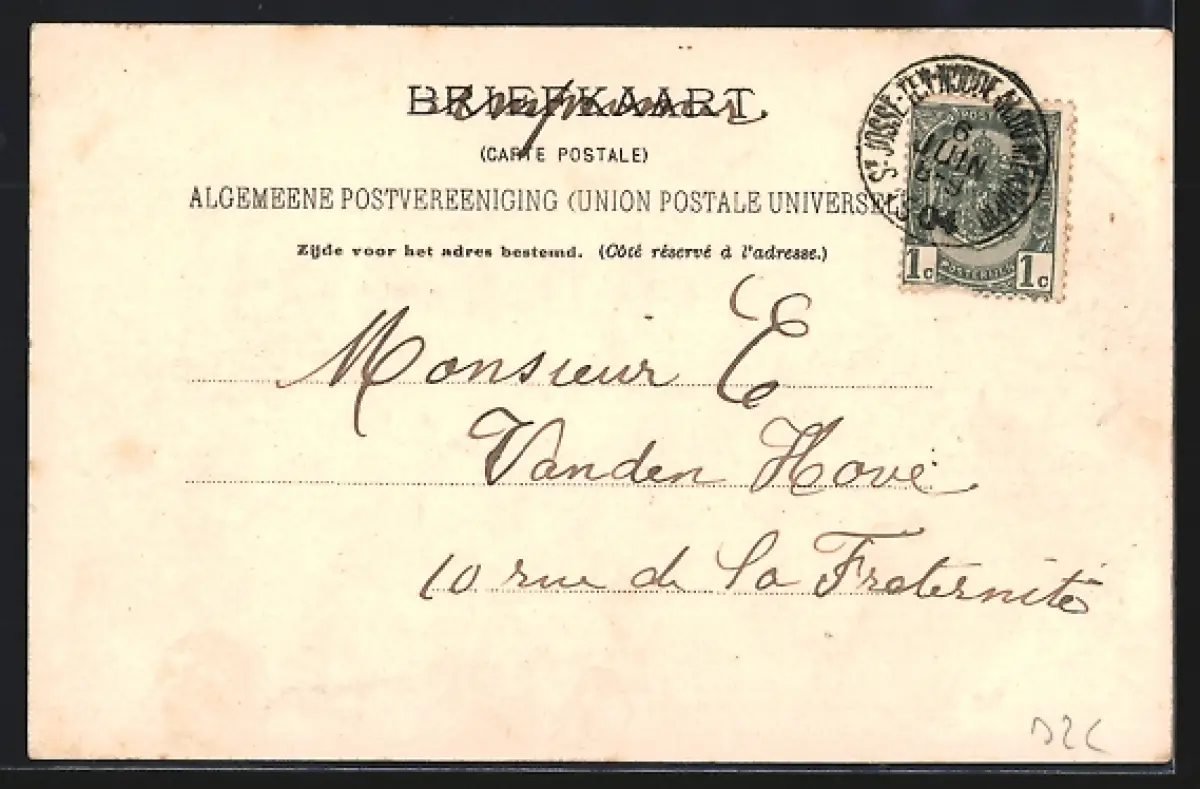 BRIEFKAART.
Imprimé
(CARTE POSTALE)
ALGEMEENE POSTVEREENIGING (UNION POSTALE UNIVERSEL
Zijde voor het adres bestemd. (Côté réservé à l'adresse.)
ST JOSSE-TEN-NOODE
6
JUIN
04
POST
POSTERIJEN
1c 1c
Monsieur E
Vanden Hove
10 rue de la Fraternité
D2C